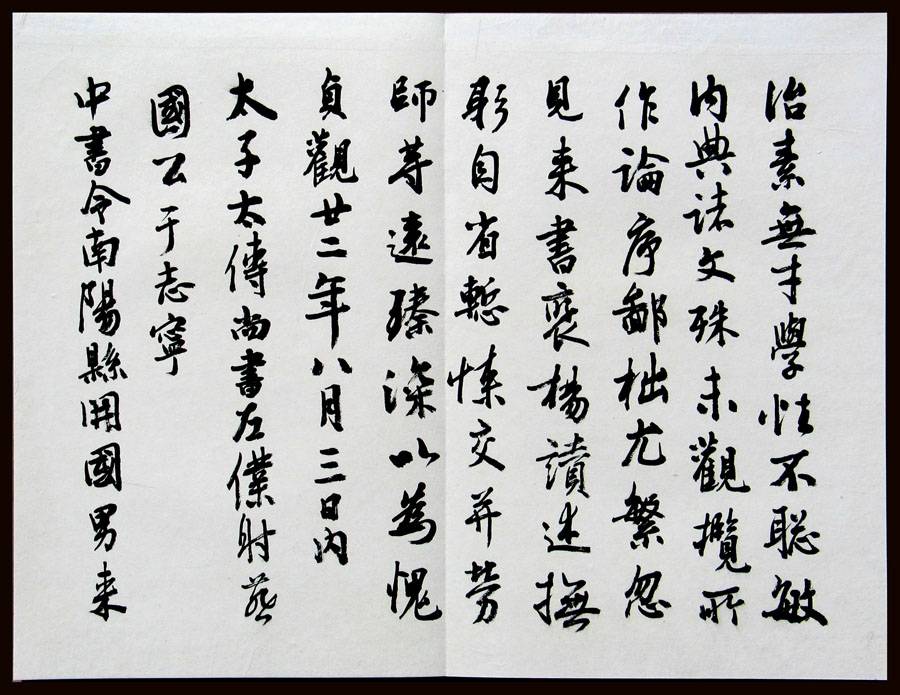 治素無才學性不聰敏
內典諸文殊未觀攬所
作論序鄙拙尤繁忽
見来書褒揚讚述撫
躬自省慙悚交并勞
師等遠臻深以為愧
貞觀廿二年八月三日內
太子太傅尚書左僕射燕
國公于志寧
中書令南陽縣開國男来